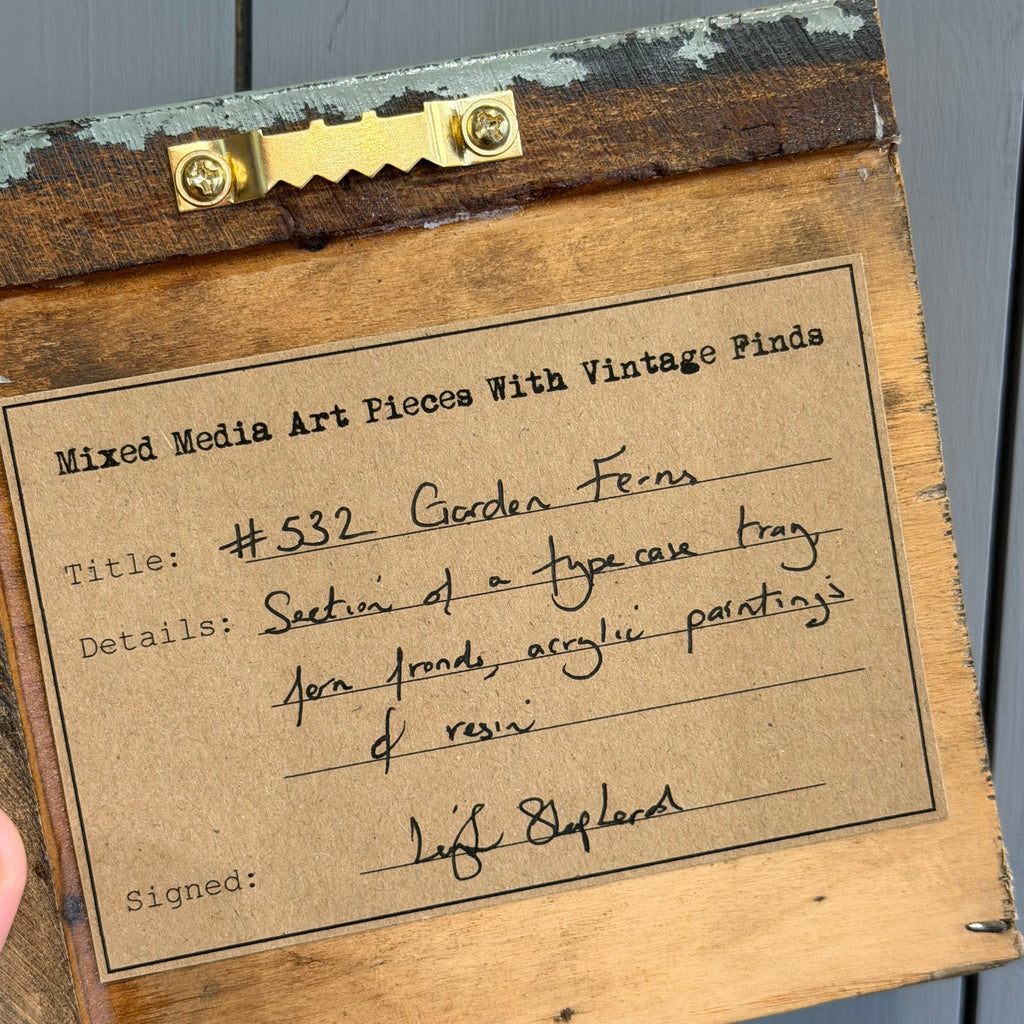 Mixed Media Art Pieces With Vintage Finds
Title: #532 Garden Ferns
Details: Section of a type case tray,
fern fronds, acrylic paintings
& resin
Signed: Leigh Shepherd